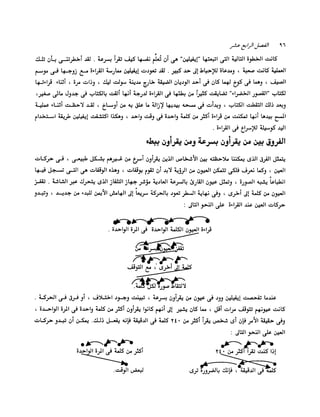 ٩٦ الفصل الرابع عشر
كانت الخطوة التالية التى اتبعتها "إيفيلين" هى أن تُعلِّم نفسها كيف تقرأ بسرعة . لقد أخبرتنى بأن تلك
العملية كانت صعبة ، ومدعاة للإحباط إلى حد كبير . لقد تعودت إيفيلين ممارسة القراءة مع زوجها فى موسم
الصيف ، وهما فى كوخ لهما كان فى أحد الوديان الضيقة خارج مدينة سولت ليك ، وذات مرة ، أثناء قراءتها
لكتاب "القصور الخضراء" تضايقت كثيراً من بطئها فى القراءة لدرجة أنها ألقت بالكتاب فى جدول مائى صغير،
وبعد ذلك التقطت الكتاب ، وبدأت فى مسحه بيديها لإزالة ما علق به من أوساخ ، لقد لاحظت أثناء عملية
المسح بيدها أنها تمكنت من قراءة أكثر من كلمة واحدة فى وقت واحد ، وهكذا اكتشفت إيفيلين طريقة استخدام
اليد كوسيلة للإسراع فى القراءة .
الفروق بين من يقرأون بسرعة ومن يقرأون ببطء
يتمثل الفرق الذى يمكننا ملاحظته بين الأشخاص الذين يقرأون أسرع من غيرهم بشكل طبيعى ، فى حركات
العين ، وكما نعرف فلكى تتمكن العيون من الرؤية لابد أن تقوم بوقفات ، وهذه الوقفات هى التى تسجل فيها
انطباعاً يشبه الصورة ، وتمثل عيون القارئ بالسرعة العادية مؤشر جهاز التلفاز الذى يتحرك عبر الشاشة . تقفز
العيون من كلمة إلى أخرى ، وفى نهاية السطر تعود بالحركة سريعاً إلى الهامش الأيمن للبدء من جديد ، وتبدو
حركات العين عند القراءة على النحو التالى :
قراءة العيون الكلمة الواحدة فى المرة الواحدة .
تقفز العيون بسرعة من
كلمة إلى أخرى ، مع التوقف
لالتقاط صورة لكل كلمة.
عندما تفحصت إيفيلين وود فى عيون من يقرأون بسرعة ، تبينت وجود اختلاف ، أو فرق فى الحركة .
كانت عيونهم تتوقف مرات أقل ، مما كان يشير إلى أنهم كانوا يقرأون أكثر من كلمة واحدة فى المرة الواحدة ،
وفى حقيقة الأمر فإن أى شخص يقرأ أكثر من ٢٤٠ كلمة فى الدقيقة فإنه يفعل ذلك. يمكن أن تبدو حركات
العين على النحو التالى :
إذا كنت تقرأ أكثر من ٢٤٠ أكثر من كلمة فى المرة الواحدة
كلمة فى الدقيقة ، فإنك بالضرورة ترى لبعض الوقت.